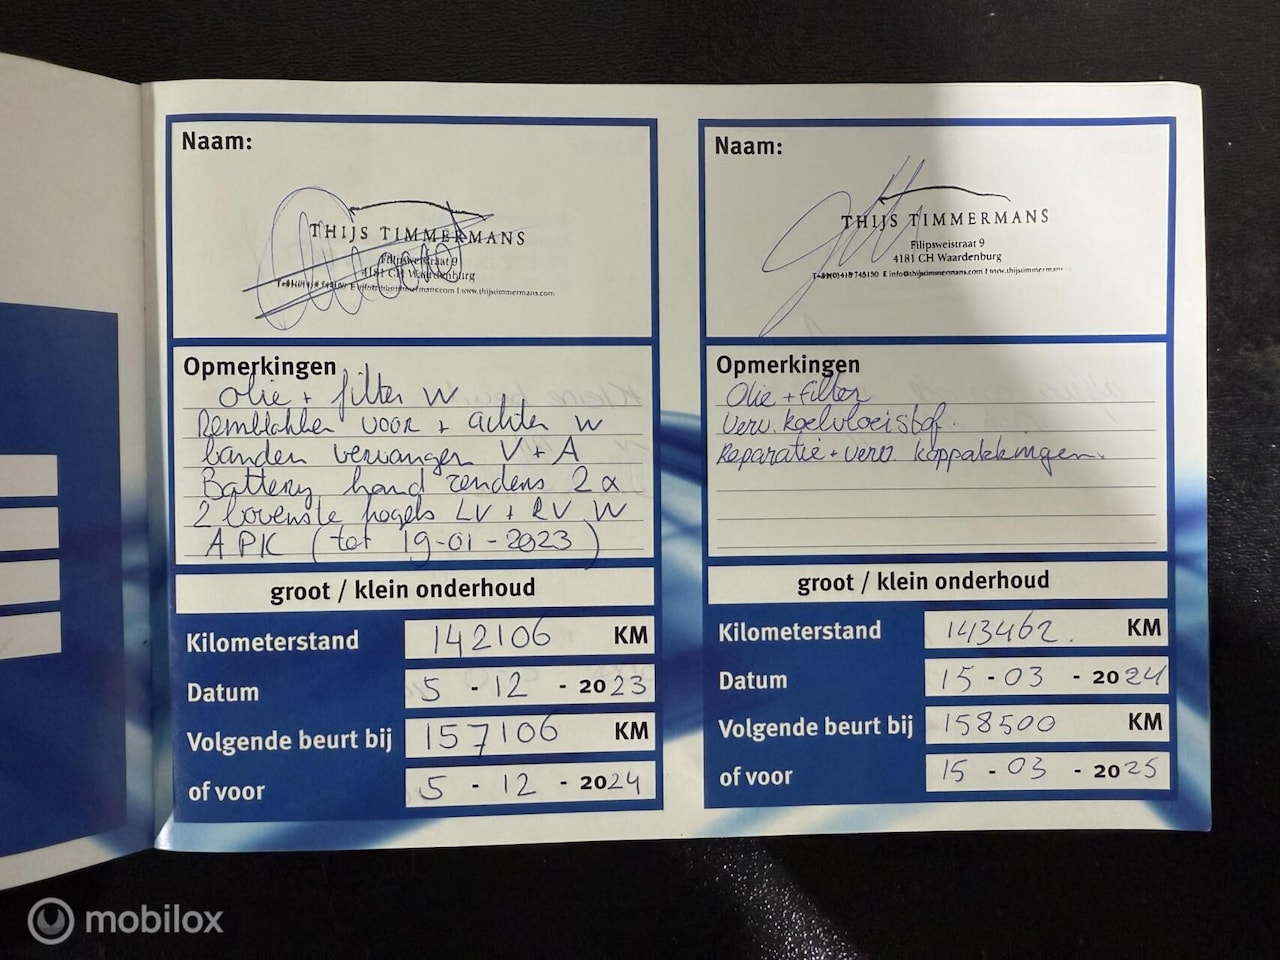 Naam:
THIJS TIMMERMANS
Filipsweistraat 9
4181 CH Waardenburg
www.thijstimmermans.com
Opmerkingen
olie + filter W
Remblokken voor + achter W
banden vervangen V + A
Battery hand zenders 2 x
2 bovenste kogels LV + RV W
APK (tot 19-01-2023)
groot / klein onderhoud
Kilometerstand 142106 KM
Datum 5 - 12 - 2023
Volgende beurt bij 157106 KM
of voor 5 - 12 - 2024
Naam:
THIJS TIMMERMANS
Filipsweistraat 9
4181 CH Waardenburg
T+31(0)418 745150 E info@thijstimmermans.com I www.thijstimmermans
Opmerkingen
Olie + filter
Verv. koelvloeistof.
Reparatie + verv koppakkingen.
groot / klein onderhoud
Kilometerstand 143462. KM
Datum 15 - 03 - 2024
Volgende beurt bij 158500 KM
of voor 15 - 03 - 2025
mobilox